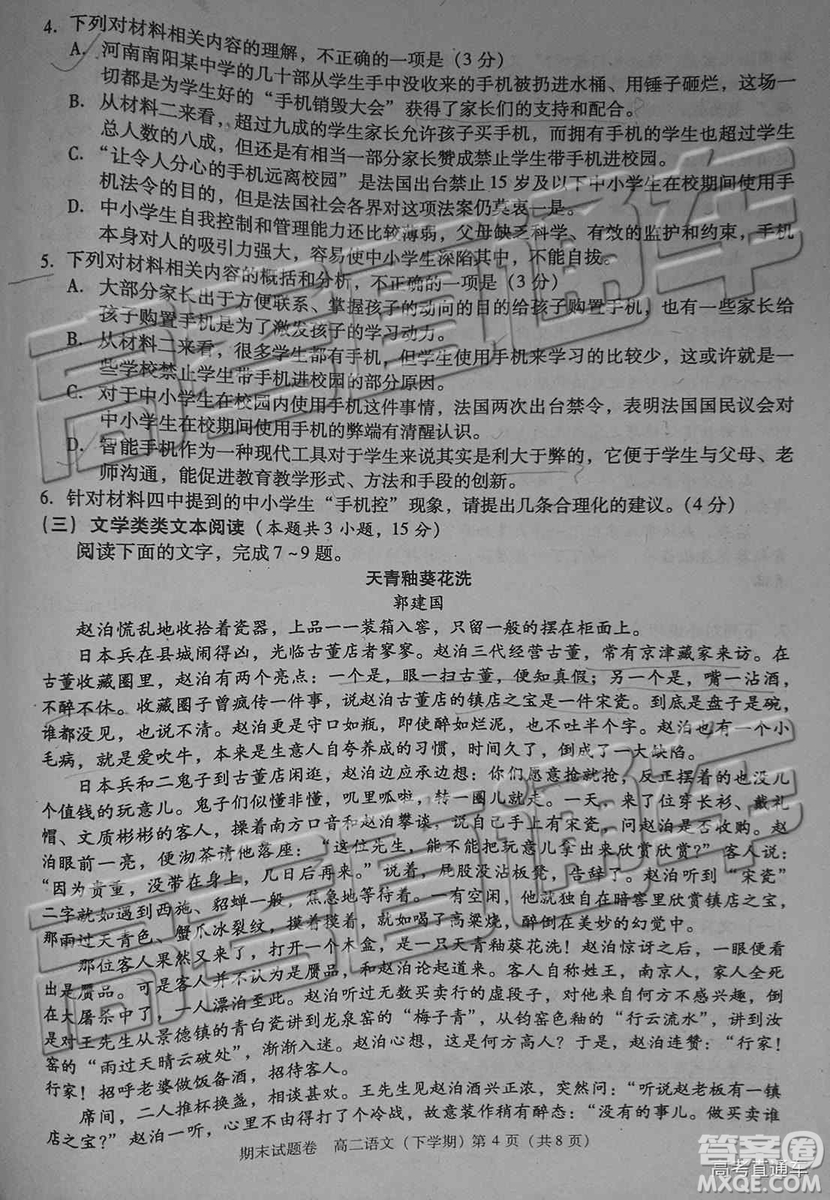 4. 下列对材料相关内容的理解，不正确的一项是（3 分）
A. 河南南阳某中学的几十部从学生手中没收来的手机被扔进水桶、用锤子砸烂，这场一
切都是为学生好的“手机销毁大会”获得了家长们的支持和配合。
B. 从材料二来看，超过九成的学生家长允许孩子买手机，而而拥有手机的学生超过学生
总人数的八成，但是也有相当一部分家长赞成禁止学生带手机进校园。
C. “让令人分心的手机远离校园”是法国出台禁止 15 岁及以下中小学生在校期间使用手
机法令的目的，但是法国社会各界对这项法案仍莫衷一是。
D. 中小学生自我控制和管理能力还比较薄弱，父母缺乏科学、有效的监护和约束，手机
本身对人的吸引力强大，容易使中小学生深陷其中，不能自拔。
5. 下列对材料相关内容的概括和分析，不正确的一项是（3 分）
A. 大部分家长出于方便联系、掌握孩子的动向的目的给孩子购置手机，也有一些家长给
孩子购置手机是为了激发孩子的学习动力。
B. 从材料二来看，很多学生都有手机，但学生使用手机来学习的比较少，这或许就是一
些学校禁止学生带手机进校园的部分原因。
C. 对于中小学生在校园内使用手机这件事情，法国两次出台禁令，表明法国国民议会对
中小学生在校期间使用手机的弊端有清醒认识。
D. 智能手机作为一种现代工具对于学生来说其实是利大于弊的，它便于学生与父母、老
师沟通，能促进教育教学形式、方法和手段的创新。
6. 针对材料四中提到的中小学生“手机控”现象，请提出几条合理化的建议。（4 分）
（三）文学类类文本阅读（本题共 3 小题，15 分）
阅读下面的文字，完成 7~9 题。
天青釉葵花洗
郭建国
赵泊慌乱地收拾着瓷器，上品一一装箱入窖，只留一般的摆在柜面上。
日本兵在县城闹得凶，光临古董店者寥寥。赵泊三代经营古董，常有京津藏家来访。在
古董收藏圈里，赵泊有两个亮点：一个是，眼一扫古董，便知真假；另一个是，嘴一沾酒，
不醉不休。收藏圈子曾疯传一件事，说赵泊古董店的镇店之宝是一件宋瓷。到底是盘子是碗，
谁都没见，也说不清。赵泊更是守口如瓶，即便醉如烂泥，也不吐半个字。赵泊也有一个小
毛病，就是爱吹牛，本来是生意人自夸养成的习惯，时间久了，倒成了一大缺陷。
日本兵和二鬼子到古董店闲逛，赵泊边应承边想：你们愿意抢就抢，反正摆的也没几
个值钱的玩意儿。鬼子们似懂非懂，叽里呱啦，转转就走。一天，来了一位穿长衫、戴礼
帽、文质彬彬的客人，操着南方口音和赵泊攀谈，说自己手上有宋瓷，问赵泊是否收购。赵
泊眼前一亮，便沏茶请他落座：“这位先生，能不能把玩意儿拿出来欣赏欣赏？”客人说：
“因为贵重，没带在身上，几日后再来。”说着，屁股没沾板凳，告辞了。赵泊听到“宋瓷”
二字就如遇到西施、貂蝉一般，焦急地等待着。一有空闲，他就独自在暗窖里欣赏镇店之宝，
那雨过天青色、蟹爪冰裂纹，摸着摸着，就喝了高粱烧，醉倒在美妙的幻觉中。
那位客人果然又来了，打开一个木盒，是一只天青釉葵花洗！赵泊惊讶之后，一眼便看
出是赝品。客人也并不认为是赝品，和赵泊讨论起来。客人自称姓王，南京人，家人全死
在大屠杀中了，一人漂泊至此。赵泊听过无数买卖行的虚段子，对这些不感兴趣，倒
对王先生从景德镇的青白瓷讲到龙泉窑的“梅子青”，从钧窑色釉的“行云流水”，讲到汝
窑的“雨过天晴云破处”，渐渐入迷。赵泊心想，这是何方高人？于是，赵泊连赞：“行家！
行家！招呼老婆做饭备酒，招待客人。
席间，二人推杯换盏，天南海北。王先生见赵泊酒兴正浓，突然问：“听说赵老板有一镇
店之宝？”赵泊一听，心里不由得打了个激灵，故作镇静又稍作醉态：“没有的事儿。您都
期末试题卷　高二语文（下学期）第 4 页（共 8 页）
高考直通车
答案圈
MXQE.COM
高考直通车